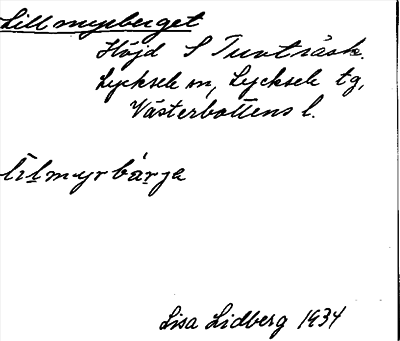 Lillmyrberget
Höjd S Tuvträsk.
Lycksele sn, Lycksele tg,
Västerbottens l.
lìlmyrbárja
Lisa Lidberg 1934